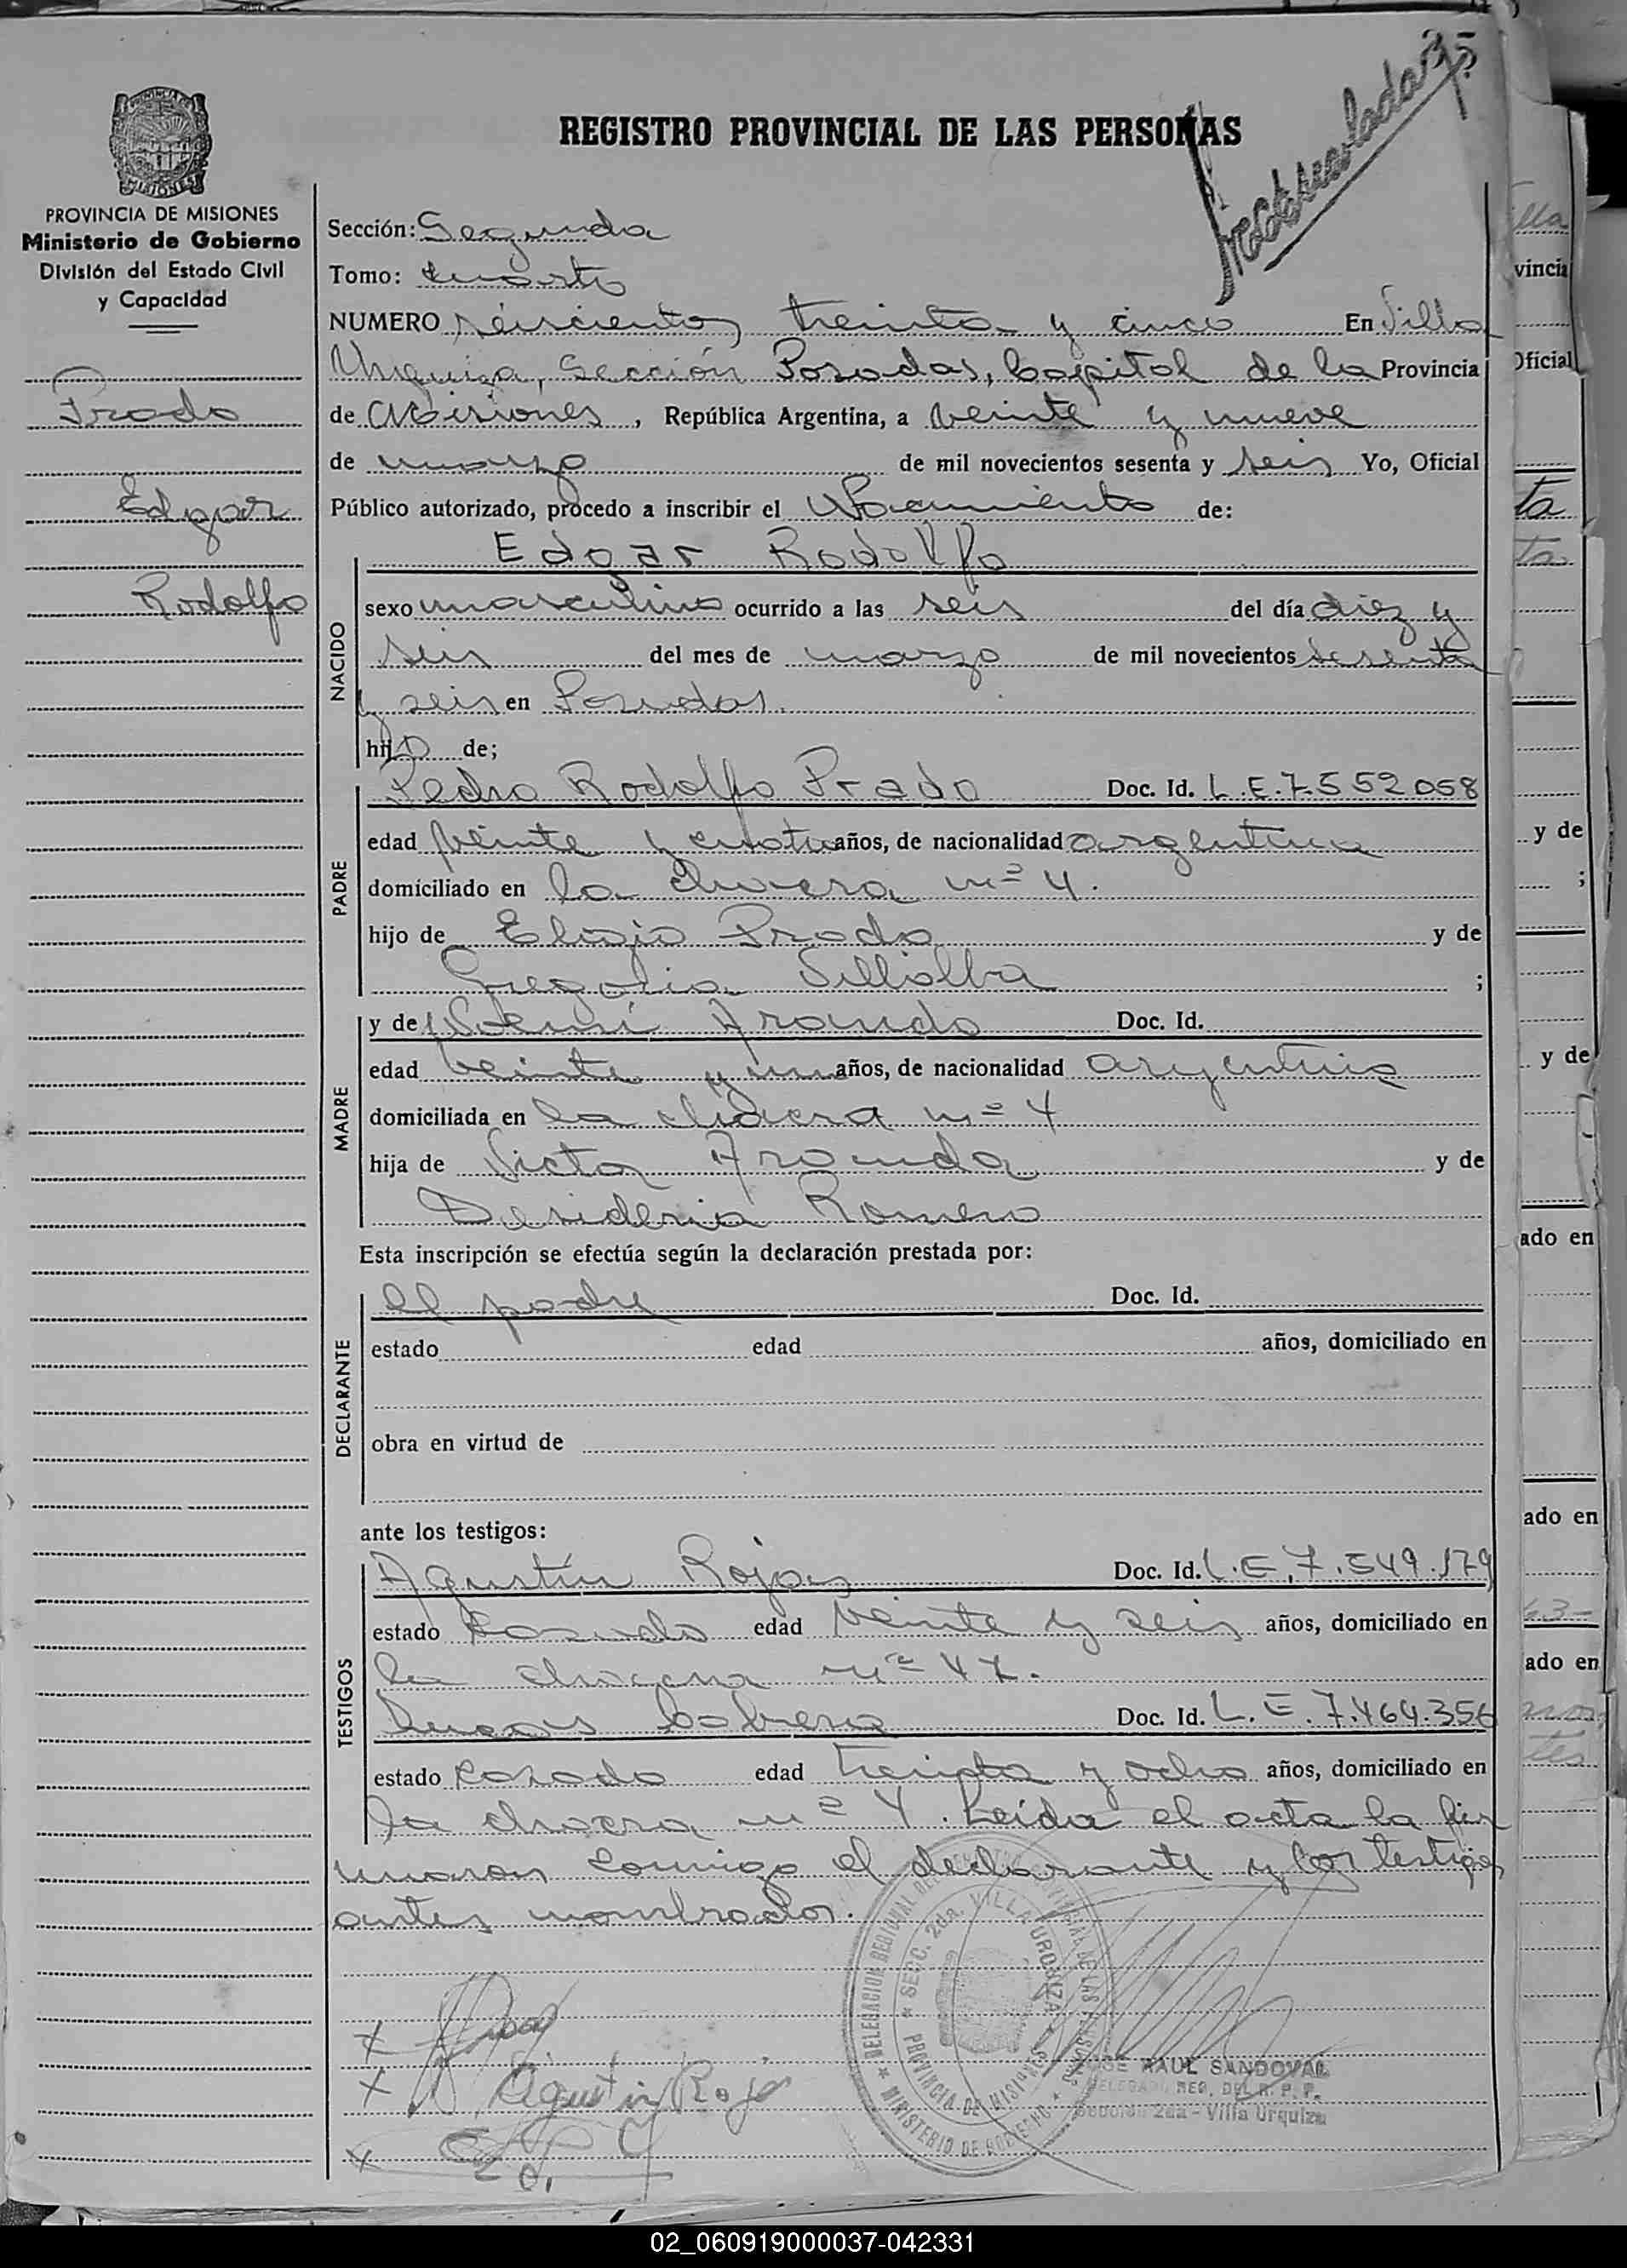 35
REGISTRO PROVINCIAL DE LAS PERSONAS
PROVINCIA DE MISIONES
Ministerio de Gobierno
División del Estado Civil
y Capacidad
Prado
Edgar
Rodolfo
Sección: Segunda
Tomo: cuarto
NUMERO seiscientos treinta y cinco En Villa
Urquiza, Sección Posadas, Capital de la Provincia
de Misiones, República Argentina, a veinte y nueve
de marzo de mil novecientos sesenta y seis Yo, Oficial
Público autorizado, procedo a inscribir el Nacimiento de:
NACIDO
Edgar Rodolfo
sexo masculino ocurrido a las seis del día diez y
seis del mes de marzo de mil novecientos sesenta
y seis en Posadas.
hijo de;
PADRE
Pedro Rodolfo Prado Doc. Id. L.E.7.552058
edad veinte y cuatro años, de nacionalidad argentina
domiciliado en la chacra nº 4.
hijo de Eligio Prado y de
Gregoria Villalba ;
MADRE
y de Noemí Aranda Doc. Id.
edad veinte y un años, de nacionalidad argentina
domiciliada en la chacra nº 4
hija de Victor Aranda y de
Desideria Romero
Esta inscripción se efectúa según la declaración prestada por:
DECLARANTE
el padre Doc. Id.
estado edad años, domiciliado en
obra en virtud de
ante los testigos:
TESTIGOS
Agustín Rojas Doc. Id. L.E.7.549.179
estado casado edad veinte y seis años, domiciliado en
la chacra nº 47.
Lucas Cabrera Doc. Id. L.E.7.464.356
estado casado edad treinta y ocho años, domiciliado en
la chacra nº 4. Leída el acta la fir
maron conmigo el declarante y los testigos
antes nombrados.
Agustin Rojas
DELEGACION REGIONAL DEL REGISTRO PROVINCIAL DE LAS PERSONAS
SECC. 2da. VILLA URQUIZA
PROVINCIA DE MISIONES
MINISTERIO DE GOBIERNO
RAUL SANDOVAL
REG. DEL R. P. P.
2da - Villa Urquiza
Villa
vincia
Oficial
ta
ta
y de
;
y de
ado en
ado en
ado en
02_060919000037-042331